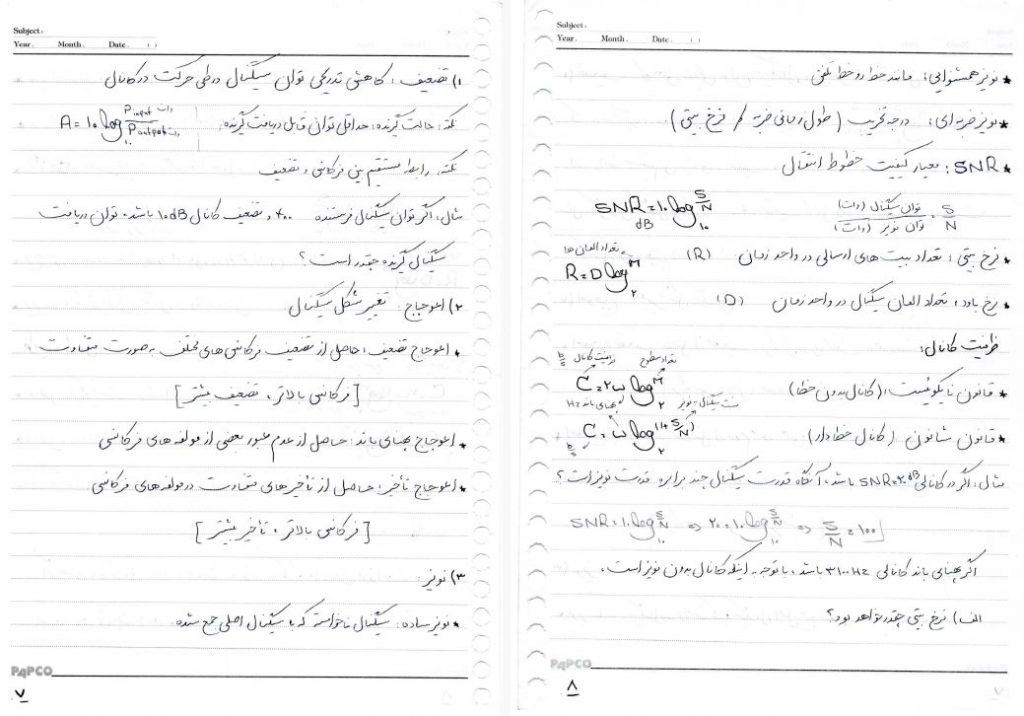 Subject:
Year. Month. Date. ( )
۱) تضعیف: کاهش تدریجی توان سیگنال در طی حرکت در کانال
نکته: حالت گیرنده: حداقل توان قابل دریافت گیرنده. A = ۱۰ log₁₀ P input وات / P output وات
نکته: رابطه مستقیم بین فرکانس و تضعیف
مثال: اگر توان سیگنال فرستنده ۴۰۰ و تضعیف کانال ۱۰dB باشد، توان دریافت
سیگنال گیرنده چقدر است؟
۲) اعوجاج: تغییر شکل سیگنال
* اعوجاج تضعیف: حاصل از تضعیف فرکانس های مختلف به صورت متفاوت
[فرکانس بالاتر، تضعیف بیشتر]
* اعوجاج پهنای باند: حاصل از عدم عبور بعضی از مولفه های فرکانسی
* اعوجاج تأخیر: حاصل از تأخیرهای متفاوت در مولفه های فرکانسی
[فرکانس بالاتر، تأخیر بیشتر]
۳) نویز:
* نویز ساده: سیگنال ناخواسته که با سیگنال اصلی جمع شده
PAPCO
۷
Subject:
Year. Month. Date. ( )
* نویز همشنوایی: مانند خط رو خط تلفن
* نویز ضربه ای: درجه تخریب (طول زمانی ضربه / نرخ بیتی)
* SNR: معیار کیفیت خطوط انتقال
SNR dB = ۱۰ log₁₀ S/N توان سیگنال (وات) / توان نویز (وات) = S/N
* نرخ بیتی: تعداد بیت های ارسالی در واحد زمان (R) R = D log₂ M تعداد المان ها
* رخ باود: تعداد المان سیگنال در واحد زمان (D)
ظرفیت کانال:
ظرفیت کانال تعداد سطوح
* قانون نایکوئیست: (کانال بدون خطا) C = ۲w log₂ M
پهنای باند Hz نسبت سیگنال به نویز
* قانون شانون (کانال خطا دار) C = w log₂ (۱+S/N)
مثال: اگر در کانالی SNR = ۲۰dB باشد، آنگاه قدرت سیگنال چند برابر قدرت نویز است؟
SNR = ۱۰ log₁₀ S/N ⇒ ۲۰ = ۱۰ log₁₀ S/N ⇒ S/N = ۱۰۰
اگر پهنای باند کانالی ۳۱۰۰Hz باشد، با توجه به اینکه کانال بدون نویز است،
الف) نرخ بیتی چقدر خواهد بود؟
PAPCO
۸